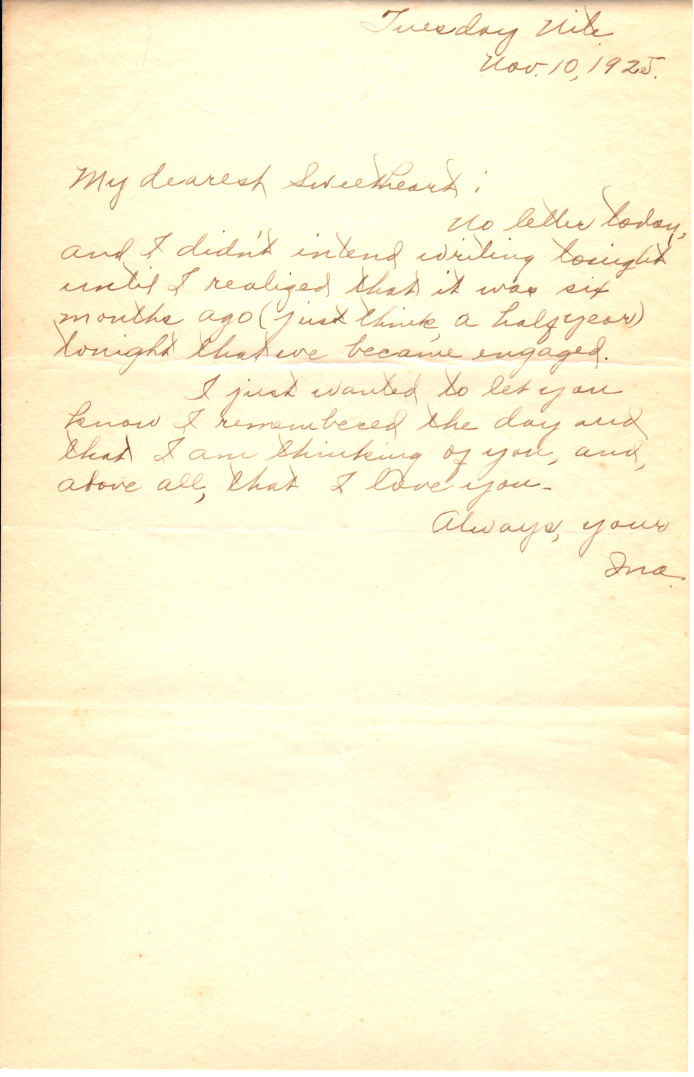 Tuesday Nite
Nov. 10, 1925.
My dearest Sweetheart:
No letter today,
and I didn't intend writing tonight
until I realized that it was six
months ago (just think, a half year)
tonight that we became engaged.
I just wanted to let you
know I remembered the day and
that I am thinking of you, and,
above all, that I love you-
Always, your
Ina.